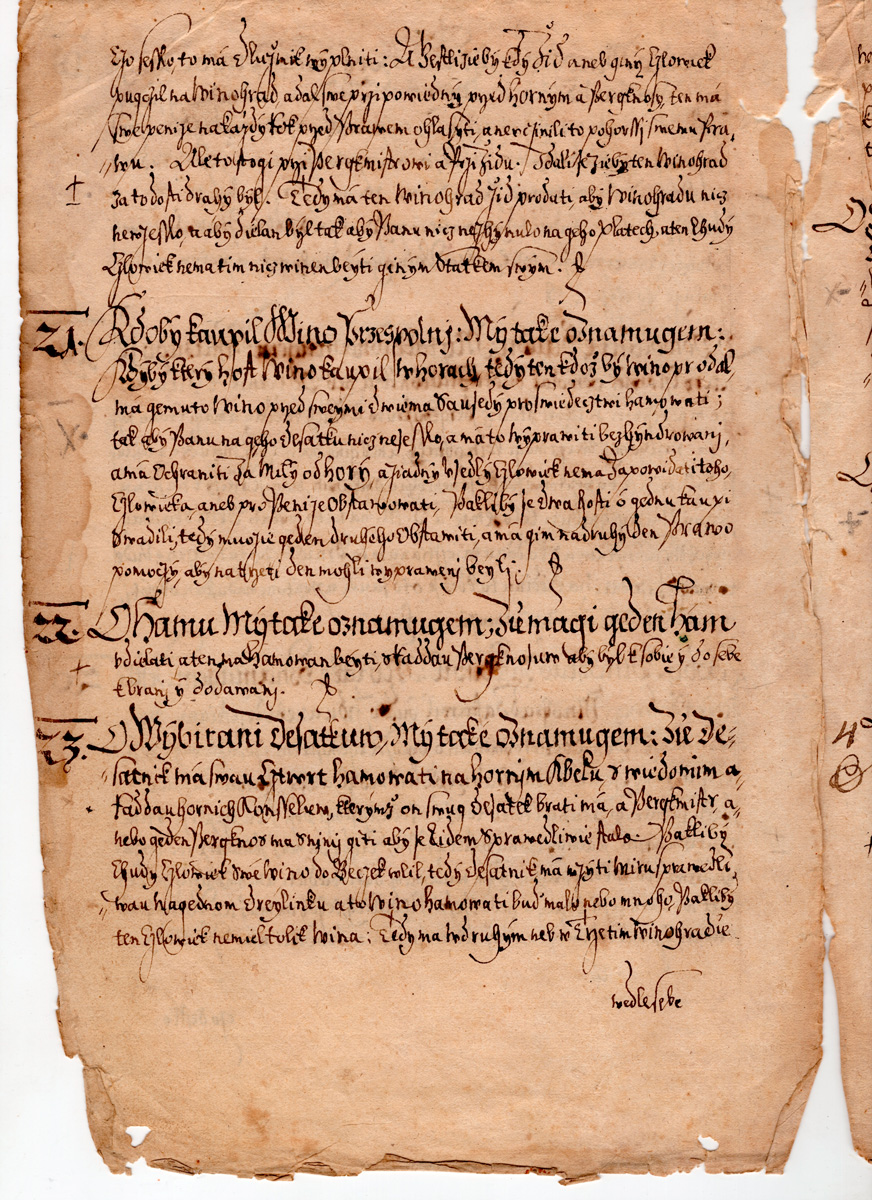 Czo sesslo, to má Dlužnik wyplniti: A Gestližieby kdý Žid aneb giný Czlowiek
pugczil na Winohrad, a dal swe przipowiedný przed Horným a Pergknosy, ten má
swe penize na každý Rok przed Prawem ohlasyti, a nercžinili to pohorssi swemu Pra-
"wu. Ale to stogi przi Pergkmistrowi a Przi Židu. Pakližieby ten Winohrad
za to dosti drahý býl. Tedy má ten Winohrad Žid prodati, aby Winohradu nicz
newzesslo, a abý dielan býl tak aby Panu nicz nezhýnulo na geho Platech, a ten Chudý
Czlowiek nema tim nicz winen beyti giným Statkem swým.
21. Kdoby kaupil Wino Przespolnj: Mý také oznamugem:
Kdyby který Host Wino kaupil w horach, tedy ten kdož bý Wino prodal,
ma gemu to Wino przed sweymi dwiema Sausedý pro swiedecztwi hamowati;
tak aby Panu na geho desatku nicz nesesslo, a má to wyprawiti bez hyndrowanj,
a má Ochraniti Za Mily od hory, a žiadný Usedlý Czlowiek nema Zapowidati toho,
Czlowieka, aneb pro Penize Obstawowati, Pakliby se dwa Hosti o gednu kaupi
swadili, tedy muože geden druhého Obstawiti, a má gim na druhý Den Prawo
pomoczý, aby na trzeti den mohli wyprawenj beyli;
22. O hamu Mý také oznamugem; Žie magi geden Ham
vdielati, a ten ma Hamowan beyti, s Raddau Pergknosuw abý byl k sobie ý do sebe
k branj ý dodawanj.
23. O Wýbirani Desatkuw, Mý také oznamugem: Žie De-
"satnik má swau Cztwrt hamowati na hornim Kbelu, s wiedomim a
Raddau hornich Konsseluw, kterýmž on smug Desatek brati má, a Pergkmistr, a-
nebo geden Pergknos ma s nimj giti abý se Lidem sprawedliwie stalo. Pakliby
Chudy Czlowiek swé Wino do Beczek wlil, tedý desatnik má wzyti Miru sprawedli
"wau w gednom Dreylinku a to Wino hamowati bud' malo nebo mnoho, Pakliby
ten Czlowiek nemiel tolik Wina: Tedý ma w druhým neb w Trzetim Winohradie
wedle sebe